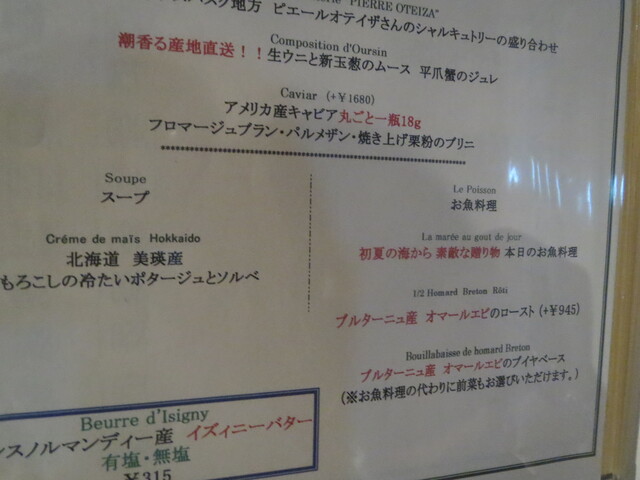 "PIERRE OTEIZA"
バスク地方 ピエールオテイザさんのシャルキュトリーの盛り合わせ
Composition d'Oursin
潮香る産地直送！！生ウニと新玉葱のムース 平爪蟹のジュレ
Caviar (+¥1680)
アメリカ産キャビア丸ごと一瓶18g
フロマージュブラン・パルメザン・焼き上げ栗粉のブリニ
Soupe
スープ
Créme de maïs Hokkaido
北海道 美瑛産
もろこしの冷たいポタージュとソルベ
Le Poisson
お魚料理
La marée au gout de jour
初夏の海から 素敵な贈り物 本日のお魚料理
1/2 Homard Breton Rôti
ブルターニュ産 オマールエビのロースト (+¥945)
Bouillabaisse de homard Breton
ブルターニュ産 オマールエビのブイヤベース
(※お魚料理の代わりに前菜もお選びいただけます。)
Beurre d'Isigny
ンスノルマンディー産 イズィニーバター
有塩・無塩
¥315